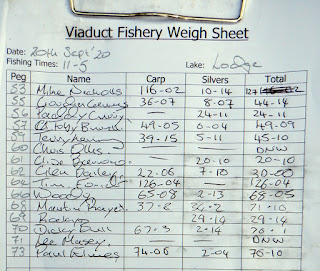 Viaduct Fishery Weigh Sheet
Date: 20th Sept '20
Fishing Times: 11-5 Lake: Lodge
Peg Name Carp Silvers Total
53 Mike Nicholls 116-02 10-14
55 36-07 8-07 44-14
56 Paddy — 24-11 24-11
49-05 0-04 49-09
59 39-15 5-11 45-10
60 Chris Ellis — DNW
61 Clive — 20-10 20-10
62 Glen Bailey 22-06 7-10 30-00
64 Tim 126-04 — 126-04
66 Woody 65-08 2-13 68-05
68 Martin 37-2 34-2 71-10
69 29-14 29-14
70 Dicky Bull 67-3 2-14 70-1
71 Lee — DNW
73 Paul 74-06 2-04 76-10